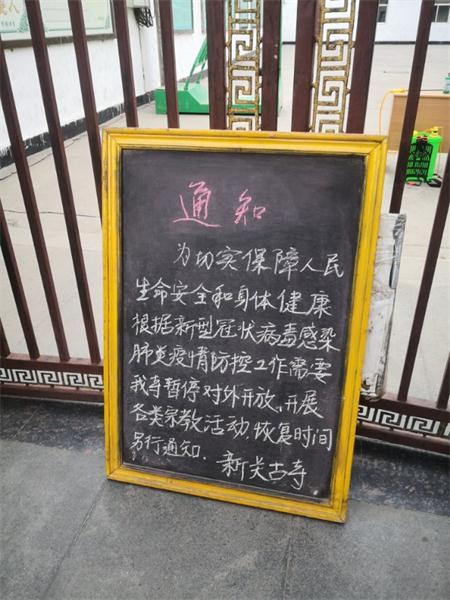 通知
为切实保障人民
生命安全和身体健康
根据新型冠状病毒感染
肺炎疫情防控工作需要
我寺暂停对外开放.开展
各类宗教活动.恢复时间
另行通知.
新关古寺